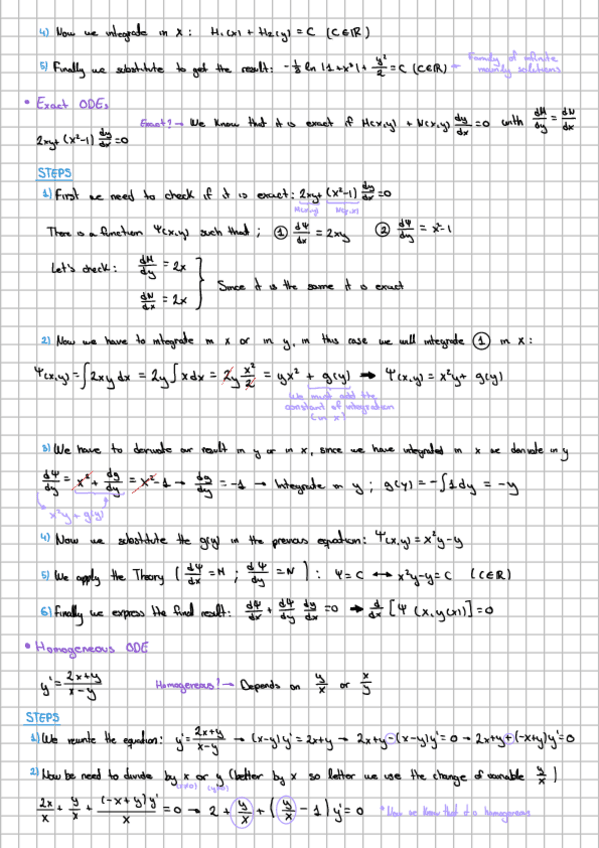 4) Now we integrate in X: H₁(x) + H₂(y) = C (C∈ℝ)
5) Finally we substitute to get the result: -⅓ ln|1+x³| + y²/2 = C (C∈ℝ) → Family of infinite
solutions
• Exact ODEs
Exact? → We know that it is exact if M(x,y) + N(x,y) dy/dx = 0 with dM/dy = dN/dx
2xy+(x²-1) dy/dx = 0
STEPS
1) First we need to check if it is exact: 2xy+(x²-1) dy/dx = 0
M(x,y) N(x,y)
There is a function Ψ(x,y) such that; ① dΨ/dx = 2xy ② dΨ/dy = x²-1
Let's check: dM/dy = 2x
dN/dx = 2x
Since it is the same it is exact
2) Now we have to integrate in x or in y, in this case we will integrate ① in x:
Ψ(x,y) = ∫2xy dx = 2y∫x dx = 2y x²/2 = yx² + g(y) → Ψ(x,y) = x²y + g(y)
We must add the
constant of integration
(in x)
3) We have to derivate our result in y or in x, since we have integrated in x we derivate in y
dΨ/dy = x² + dg/dy = x²-1 → dg/dy = -1 → Integrate in y; g(y) = -∫1dy = -y
x²y + g(y)
4) Now we substitute the g(y) in the previous equation: Ψ(x,y) = x²y-y
5) We apply the Theory (dΨ/dx = M; dΨ/dy = N): Ψ=C ↔ x²y-y=C (C∈ℝ)
6) Finally we express the final result: dΨ/dx + dΨ/dy dy/dx = 0 → d/dx [Ψ(x, y(x))] = 0
• Homogeneous ODE
y' = 2x+y/x-y Homogeneous? → Depends on y/x or x/y
STEPS
1) We rewrite the equation: y' = 2x+y/x-y → (x-y)y' = 2x+y → 2x+y-(x-y)y' = 0 → 2x+y+(-x+y)y' = 0
2) Now be need to divide by x or y (better by x so latter we use the change of variable y/x)
(x≠0) (y≠0)
2x/x + y/x + (-x+y)y'/x = 0 → 2 + y/x + (y/x - 1)y' = 0 *Now we know that it is homogeneous